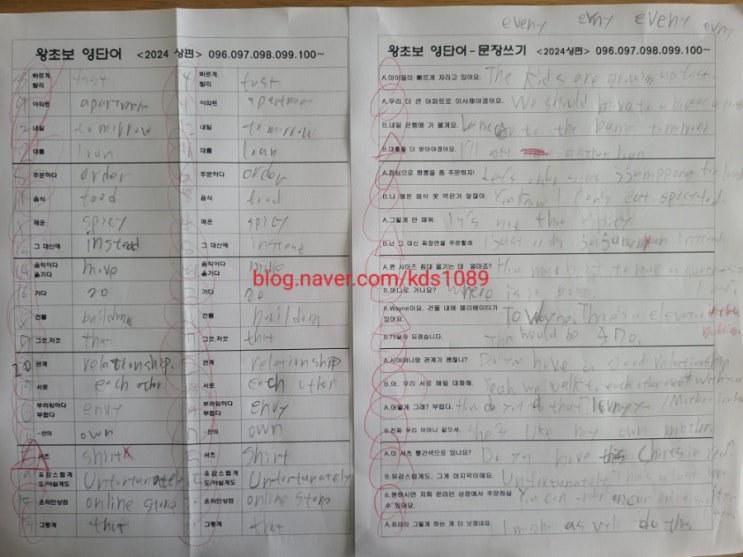 왕초보 영단어 <2024 상편> 096.097.098.099.100~
빠르게, 빨리 fast 빠르게, 빨리 fast
아파트 apartment 아파트 apartment
내일 tomorrow 내일 tomorrow
대출 loan 대출 loan
주문하다 order 주문하다 order
음식 food 음식 food
매운 spicy 매운 spicy
그 대신에 instead 그 대신에 instead
움직이다 옮기다 move 움직이다 옮기다 move
가다 go 가다 go
건물 building 건물
그것,저것 that 그것,저것 that
관계 relationship. 관계 relationship
서로 each other 서로 each other
부러워하다 부럽다 envy 부러워하다 부럽다 envy
~만의 own ~만의 own
셔츠 shirt 셔츠 shirt
유감스럽게도/아쉽게도 Unfortunately 유감스럽게도/아쉽게도 Unfortunately
온라인상점 online store 온라인상점 online store
그렇게 that 그렇게 that
blog.naver.com/kds1089
every every every every
왕초보 영단어-문장쓰기 <2024 상편> 096.097.098.099.100~
A.아이들이 빠르게 자라고 있어요. The kids are growing up fast.
A.우리 더 큰 아파트로 이사해야겠어요. We should move to a bigger
B.내일 은행에 가 볼게요. to the bank tomorrow
B.대출을 더 받아야겠어요. I'll get another loan
A.점심으로 짬뽕을 좀 주문하자! Let's order some jjamppong for lunch
B.나 매운 음식 못 먹는거 알잖아. You know I can't eat spicy food.
A.그렇게 안 매워. It's not that spicy
B.난 그 대신 짜장면을 주문할래 I'll just order instead
A.퀸 사이즈 침대 옮기는 데 얼마죠? How much is it to move a
B.어디로 가나요? Where is it going
A.Wayne이요. 건물 내에 엘리베이터가 있어요. To Wayne. There's a elevator in the building
B.70달러 되겠습니다. That would be 70.
A.시어머니랑 관계가 괜찮니? Do you have a good relationship
B.어, 우리 서로 매일 대화해. Yeah, we talk to each other every
A.어떻게 그래? 부럽다. How do you do that I envy you
B.진짜 우리 어머니 같으셔. She's like my own mother
A.이 셔츠 빨간색으로 있나요? Do you have this in red
B.유감스럽게도, 그게 마지막이에요. Unfortunately, That's
B.원하시면 저희 온라인 상점에서 주문하실 수 있어요. You can order on our online
A.차라리 그렇게 하는 게 더 낫겠네요. I might as well do that.